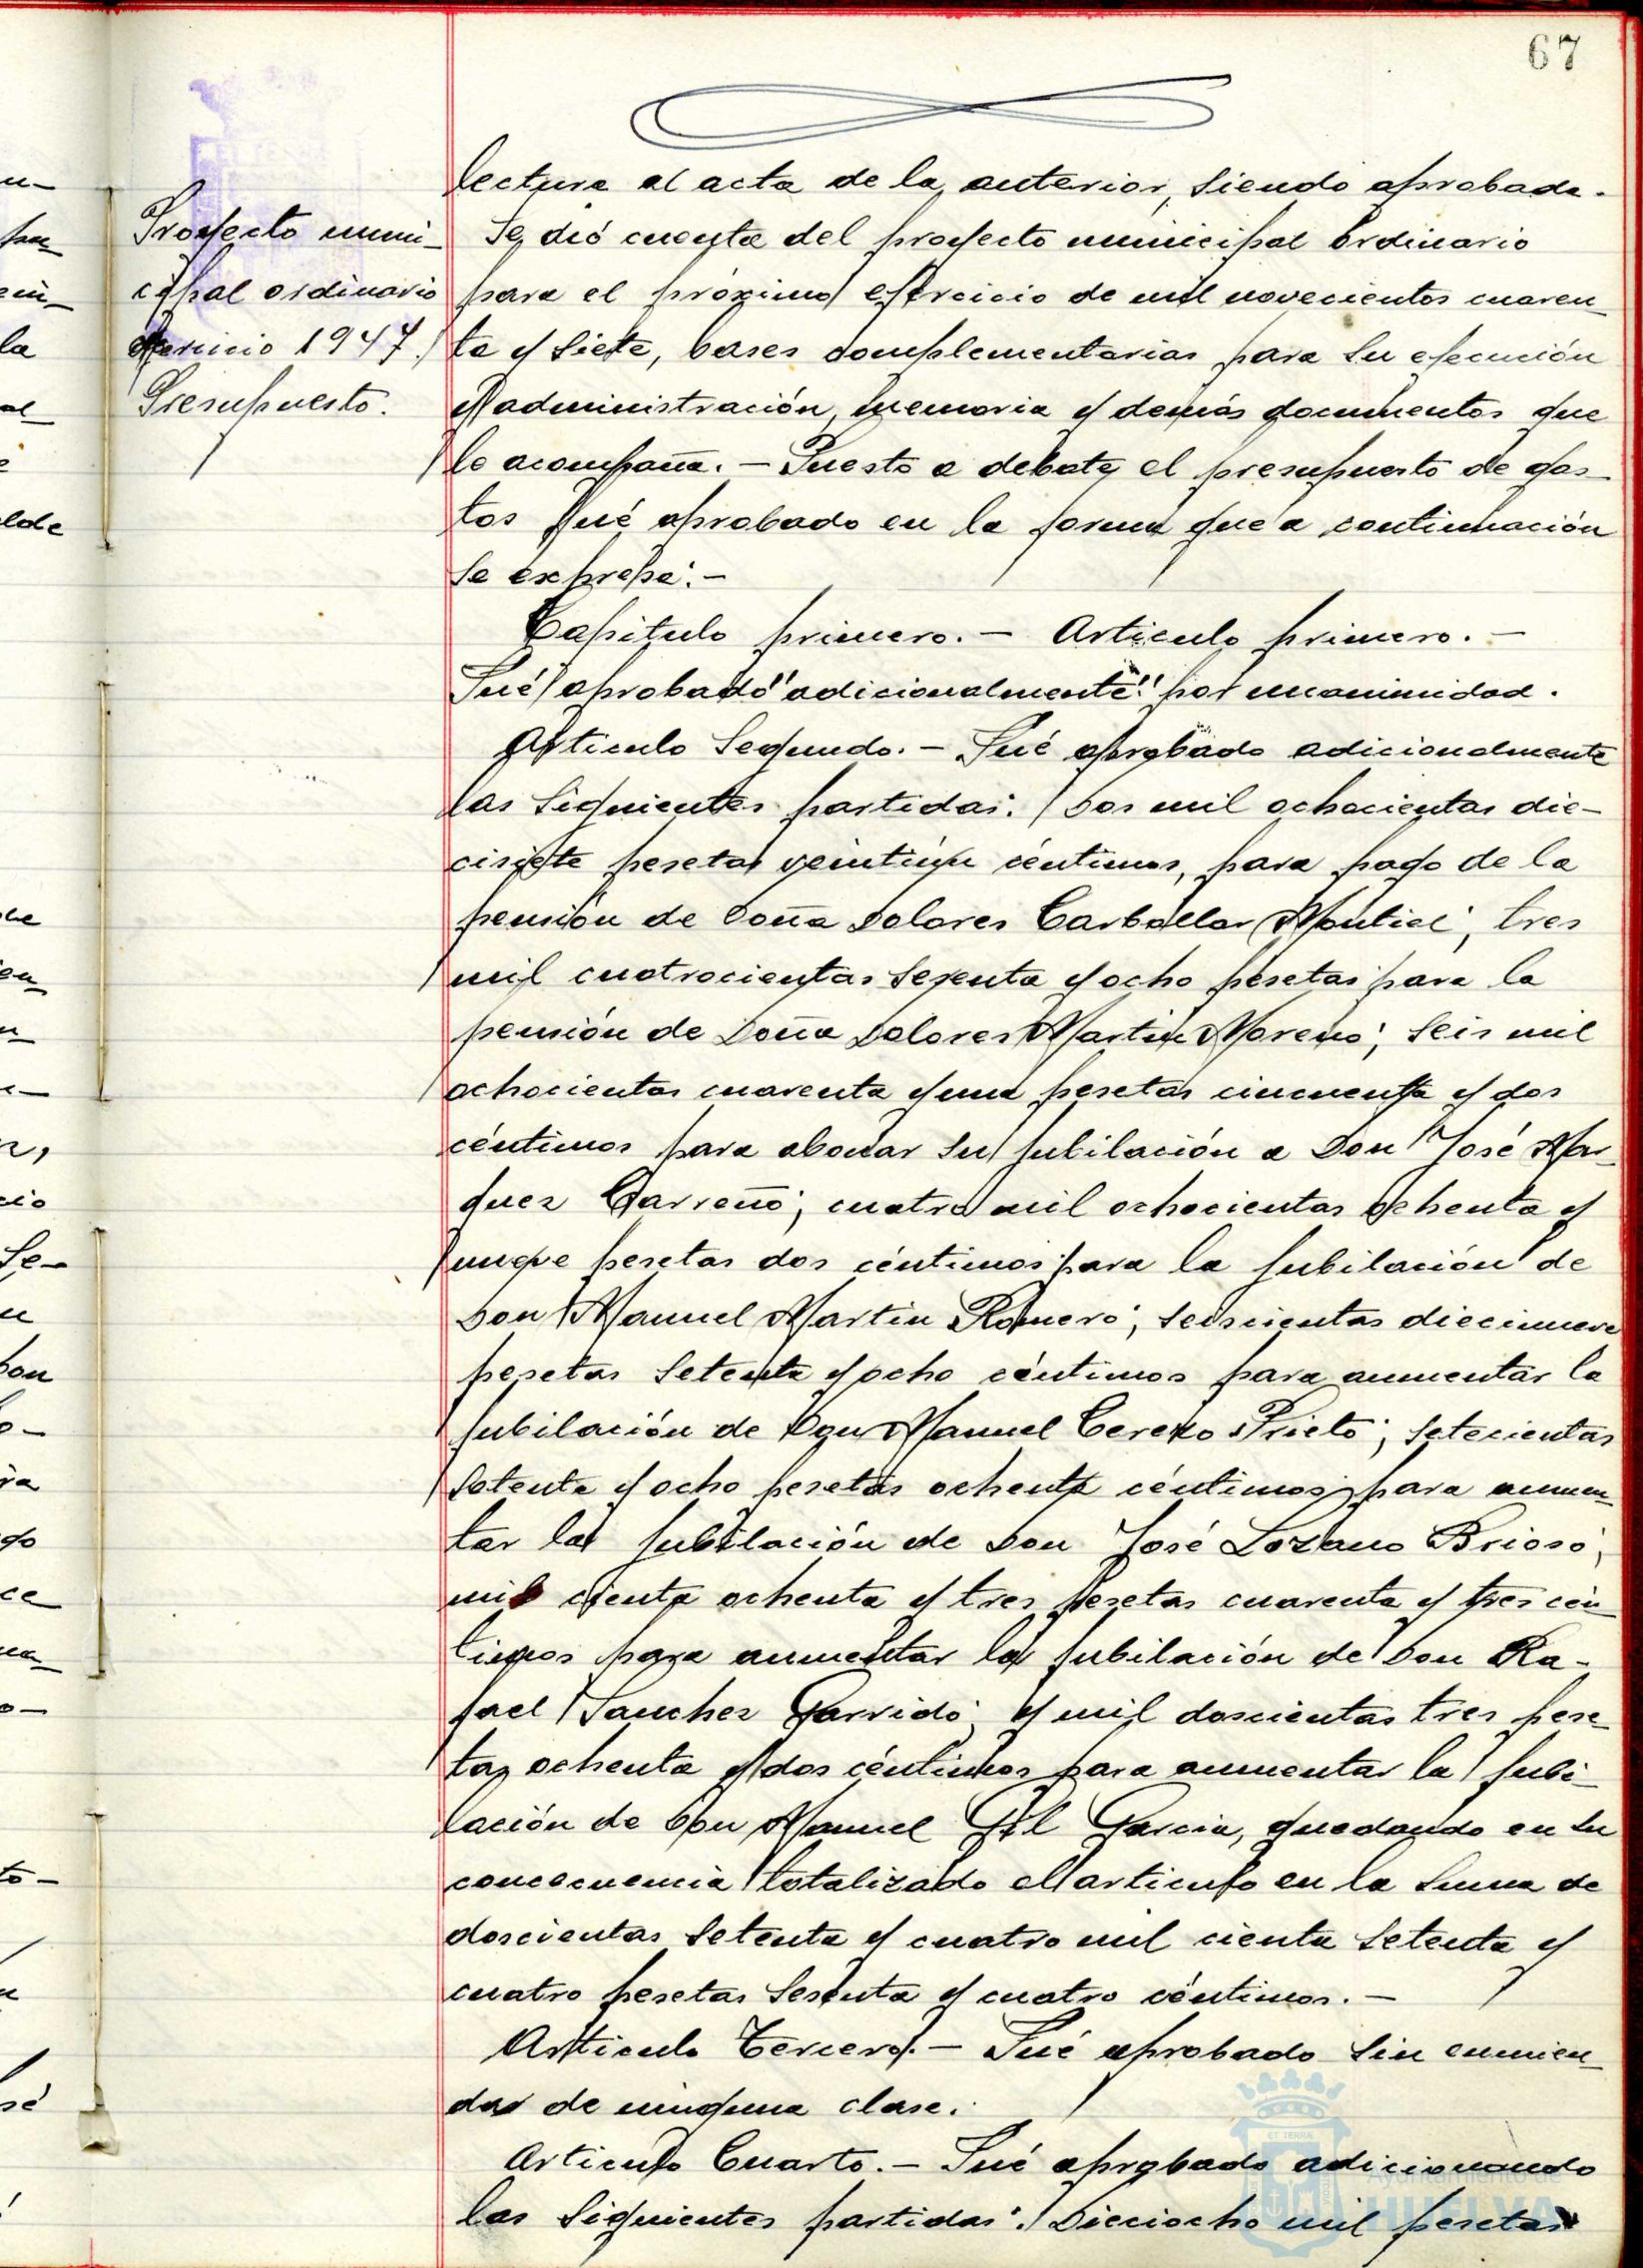 67
Proyecto muni-
cipal ordinario
ejercicio 1947.
Presupuesto.
lectura al acta de la anterior, siendo aprobada.
Se dió cuenta del proyecto municipal ordinario
para el próximo ejercicio de mil novecientos cuaren-
ta y siete, bases complementarias para su ejecución
y administración, memoria y demás documentos que
le acompaña. — Puesto a debate el presupuesto de gas-
tos fué aprobado en la forma que a continuación
se expresa: —
Capítulo primero. — Articulo primero. —
Fué aprobado "adicionalmente" por unanimidad.
Articulo Segundo. — Fué aprobado adicionalmente
las siguientes partidas: Dos mil ochocientas die-
cisiete pesetas veintiún céntimos, para pago de la
pensión de Doña Dolores Carballar Montiel; tres
mil cuatrocientas sesenta y ocho pesetas para la
pensión de Doña Dolores Martin Moreno; seis mil
ochocientas cuarenta y una pesetas cincuenta y dos
céntimos para abonar su jubilación a Don José Mar-
quez Carreño; cuatro mil ochocientas ochenta y
nueve pesetas dos céntimos para la jubilación de
Don Manuel Martin Romero; seiscientas diecinueve
pesetas setenta y ocho céntimos para aumentar la
jubilación de Don Manuel Cerezo Prieto; setecientas
setenta y ocho pesetas ochenta céntimos para aumen-
tar la jubilación de Don José Lozano Brioso;
mil cienta ochenta y tres pesetas cuarenta y tres cén-
timos para aumentar la jubilación de Don Ra-
fael Sanchez Garrido; y mil doscientas tres pese-
tas ochenta y dos céntimos para aumentar la jubi-
lación de Don Manuel Gil Garcia, quedando en su
concecuencia totalizado el articulo en la suma de
doscientas setenta y cuatro mil cienta setenta y
cuatro pesetas sesenta y cuatro céntimos. —
Articulo Tercero. — Fué aprobado sin enmien-
das de ninguna clase.
Articulo Cuarto. — Fué aprobado adicionando
las siguientes partidas: Dieciocho mil pesetas
ET TERRA
Ayuntamiento de
HUELVA